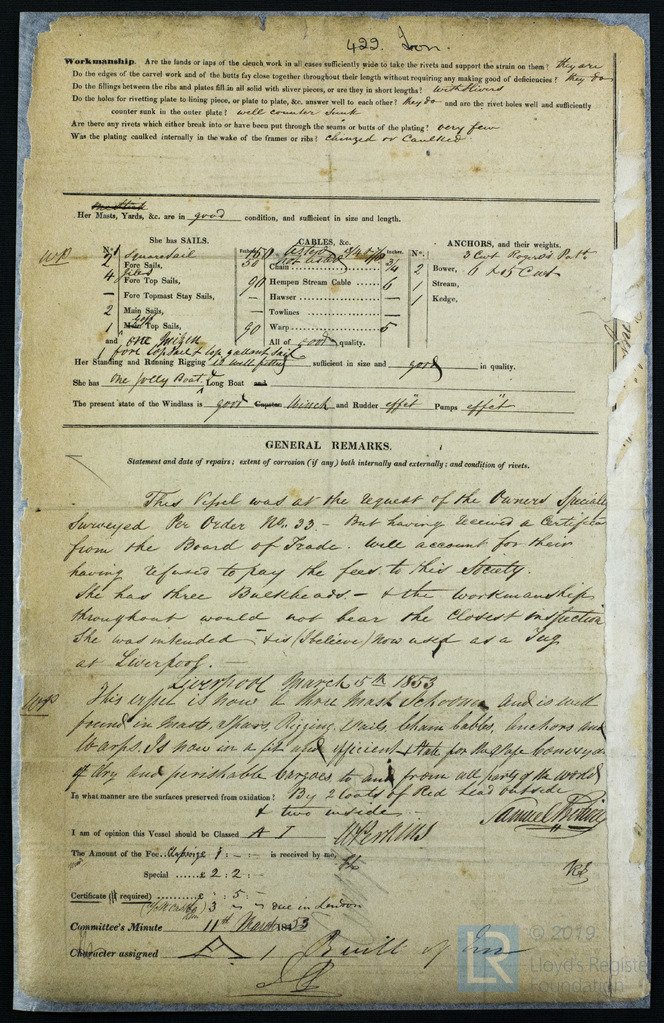 422 Iron.
Workmanship. Are the lands or laps of the clench work in all cases sufficiently wide to take the rivets and support the strain on them? they are
Do the edges of the carvel work and of the butts fay close together throughout their length without requiring any making good of deficiencies? they do
Do the fillings between the ribs and plates fill in all solid with sliver pieces, or are they in short lengths? with slivers
Do the holes for rivetting plate to lining piece, or plate to plate, &c. answer well to each other? they do and are the rivet holes well and sufficiently
counter sunk in the outer plate? well counter sunk
Are there any rivets which either break into or have been put through the seams or butts of the plating? very few
Was the plating caulked internally in the wake of the frames or ribs? chinzed or Caulked
Her Masts, Yards, &c. are in good condition, and sufficient in size and length.
She has SAILS. CABLES, &c. ANCHORS, and their weights.
No. 1 Squaresail Fathoms. 150 Inches. No. 3 Cwt
2 Fore Sails, Chain 2 Bower,
4 Fore Top Sails, 90 Hempen Stream Cable 6 1 Stream,
Fore Topmast Stay Sails, Hawser 1 Kedge,
2 Main Sails, Towlines
1 Main Top Sails, 90 Warp 5
and one Mizen All of good quality.
1 fore top sail & top gallant sail
Her Standing and Running Rigging is well fitted sufficient in size and good in quality.
She has one Jolly Boat & Long Boat and
The present state of the Windlass is good Capstan Winch and Rudder effit Pumps effit
GENERAL REMARKS.
Statement and date of repairs; extent of corrosion (if any) both internally and externally; and condition of rivets.
This Vessel was at the request of the Owners Specially
Surveyed Per Order No. 33 - But having received a Certifica
from the Board of Trade. Will account for their
having refused to pay the fees to this Society.
She has three Bulkheads - & the workmanship
throughout would not bear the closest inspection
She was intended & is (I believe) now used as a Tug
at Liverpool. -
Liverpool March 5th 1853
This vessel is now a three Mast Schooner and is well
found in Masts, Spars, Rigging, Sails, Chain Cables, Anchors and
Warps. Is now in a fit and efficient State for the safe Conveyance
of dry and perishable Cargoes, to and from all parts of the World
In what manner are the surfaces preserved from oxidation? By 2 Coats of Red lead outside
& two inside
Samuel
I am of opinion this Vessel should be Classed A I
The Amount of the Fee is received by me,
Special £ 2 : 2 : -
Certificate (if required) : 5 : -
3 due in London
Committee's Minute 11th March 1853
Character assigned A 1 Built of Iron
LR © 2019
Lloyd's Register
Foundation